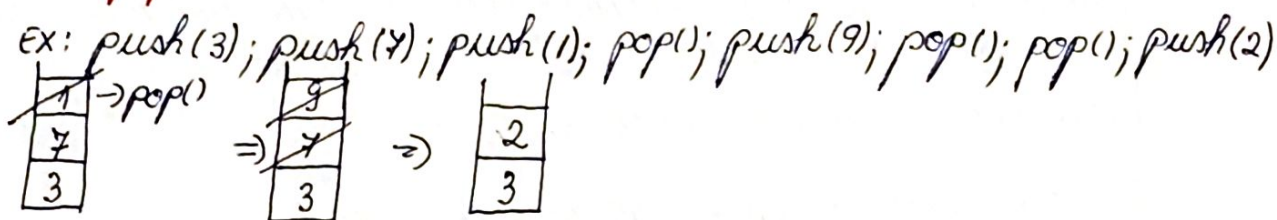 Ex: push(3); push(7); push(1); pop(); push(9); pop(); pop(); push(2)
1 →pop() 9
7 => 7 => 2
3 3 3